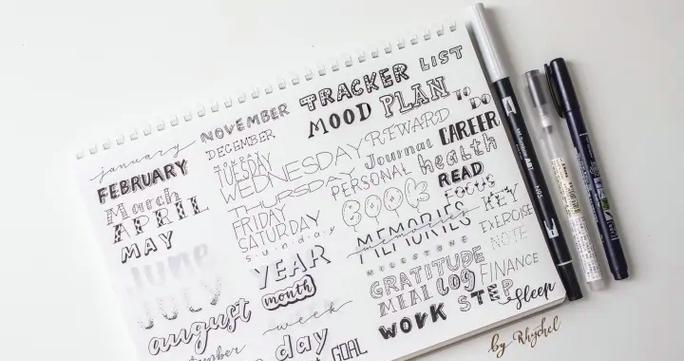 january
FEBRUARY
March
APRIL
MAY
June
JULY
august
NOVEMBER
DECEMBER
MONDAY
TUESDAY
WEDNESDAY
THURSDAY
FRIDAY
SATURDAY
sunday
YEAR
month
week
day
TRACKER LIST
MOOD PLAN
TO DO
REWARD
Journal CAREER
PERSONAL health
BOOK READ
FOCUS
MEMORIES KEY
memories
EXERCISE
MILESTONE NOTE
GRATITUDE
MEAL log FINANCE
WORK STEP
Sleep
GOAL
by Rhychel